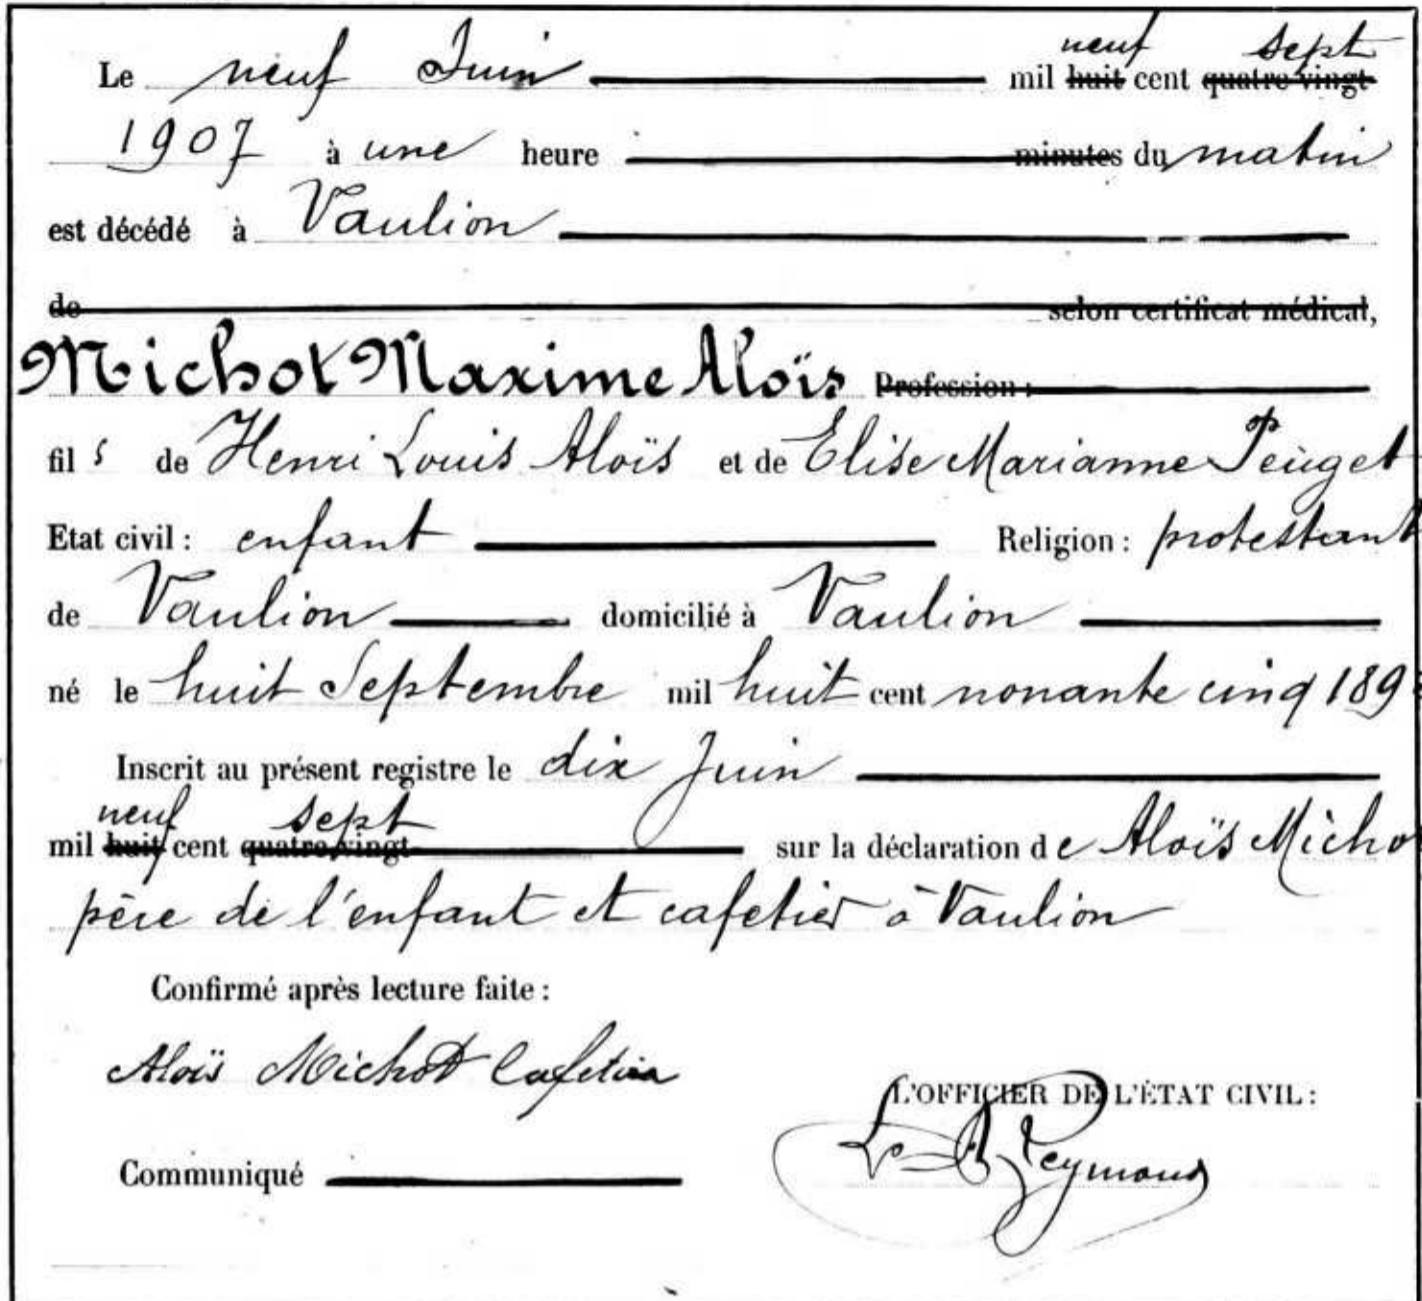 Le neuf Juin mil huit neuf cent quatre vingt sept
1907 à une heure minutes du matin
est décédé à Vaulion
de selon certificat médical,
Michot Maxime Aloïs Profession :
fils de Henri Louis Aloïs et de Elise Marianne Peüget
Etat civil : enfant Religion : protestant
de Vaulion domicilié à Vaulion
né le huit Septembre mil huit cent nonante cinq 189
Inscrit au présent registre le dix Juin
mil huit neuf cent quatre vingt sept sur la déclaration de Aloïs Micho
père de l'enfant et cafetier à Vaulion
Confirmé après lecture faite :
Aloïs Michot Cafetier
L'OFFICIER DE L'ÉTAT CIVIL :
Ls A. Reymond
Communiqué